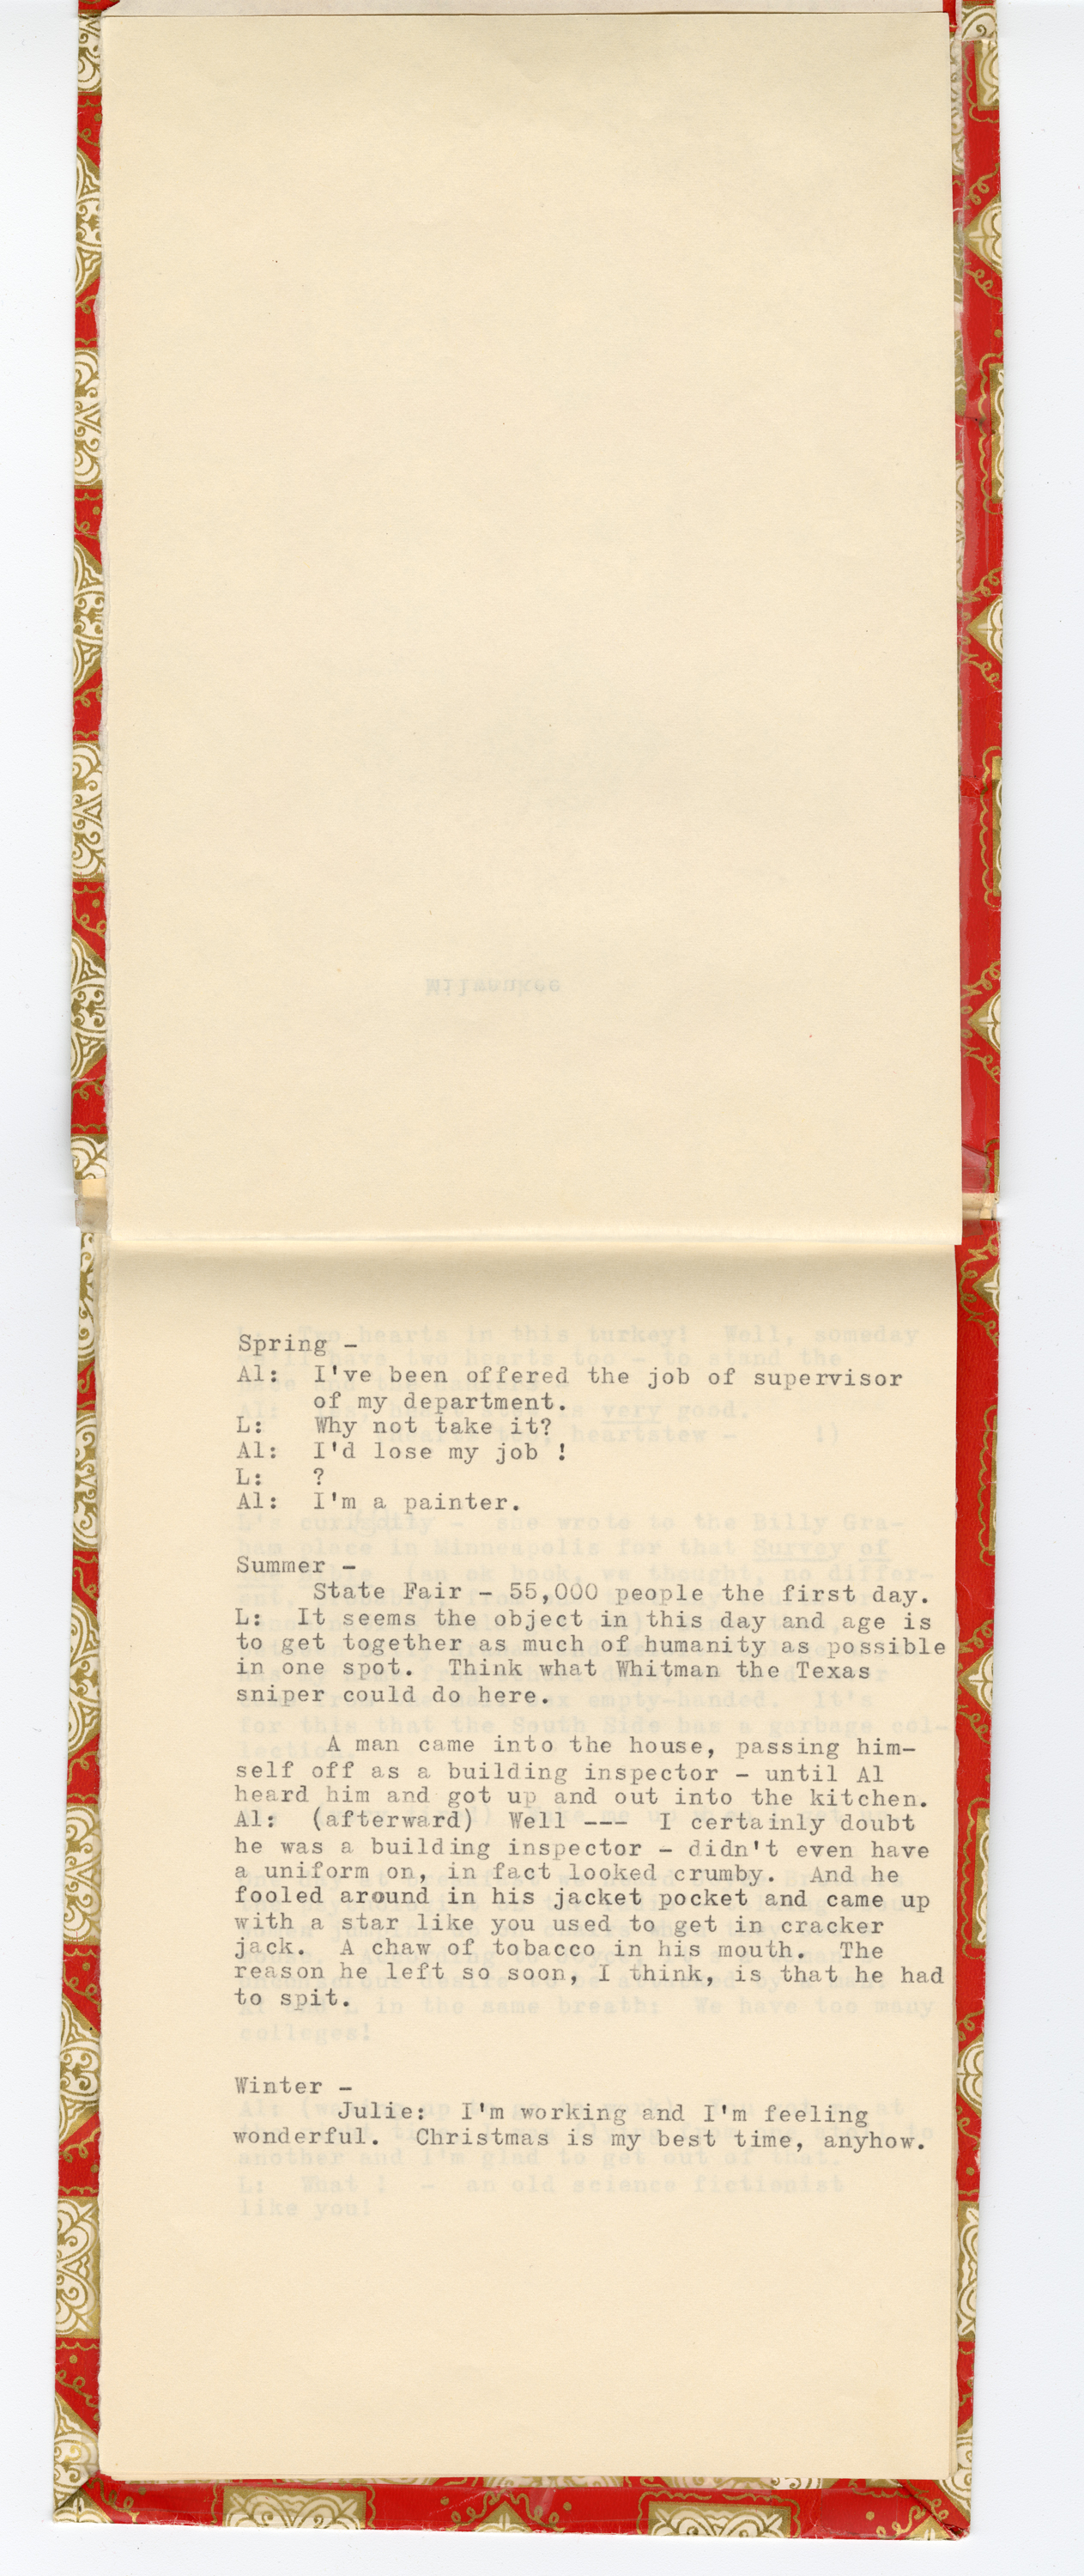 Milwaukee
Spring -
Al: I've been offered the job of supervisor
of my department.
L: Why not take it?
Al: I'd lose my job !
L: ?
Al: I'm a painter.
Summer -
State Fair - 55,000 people the first day.
L: It seems the object in this day and age is
to get together as much of humanity as possible
in one spot. Think what Whitman the Texas
sniper could do here.
A man came into the house, passing him-
self off as a building inspector - until Al
heard him and got up and out into the kitchen.
Al: (afterward) Well --- I certainly doubt
he was a building inspector - didn't even have
a uniform on, in fact looked crumby. And he
fooled around in his jacket pocket and came up
with a star like you used to get in cracker
jack. A chaw of tobacco in his mouth. The
reason he left so soon, I think, is that he had
to spit.
Winter -
Julie: I'm working and I'm feeling
wonderful. Christmas is my best time, anyhow.